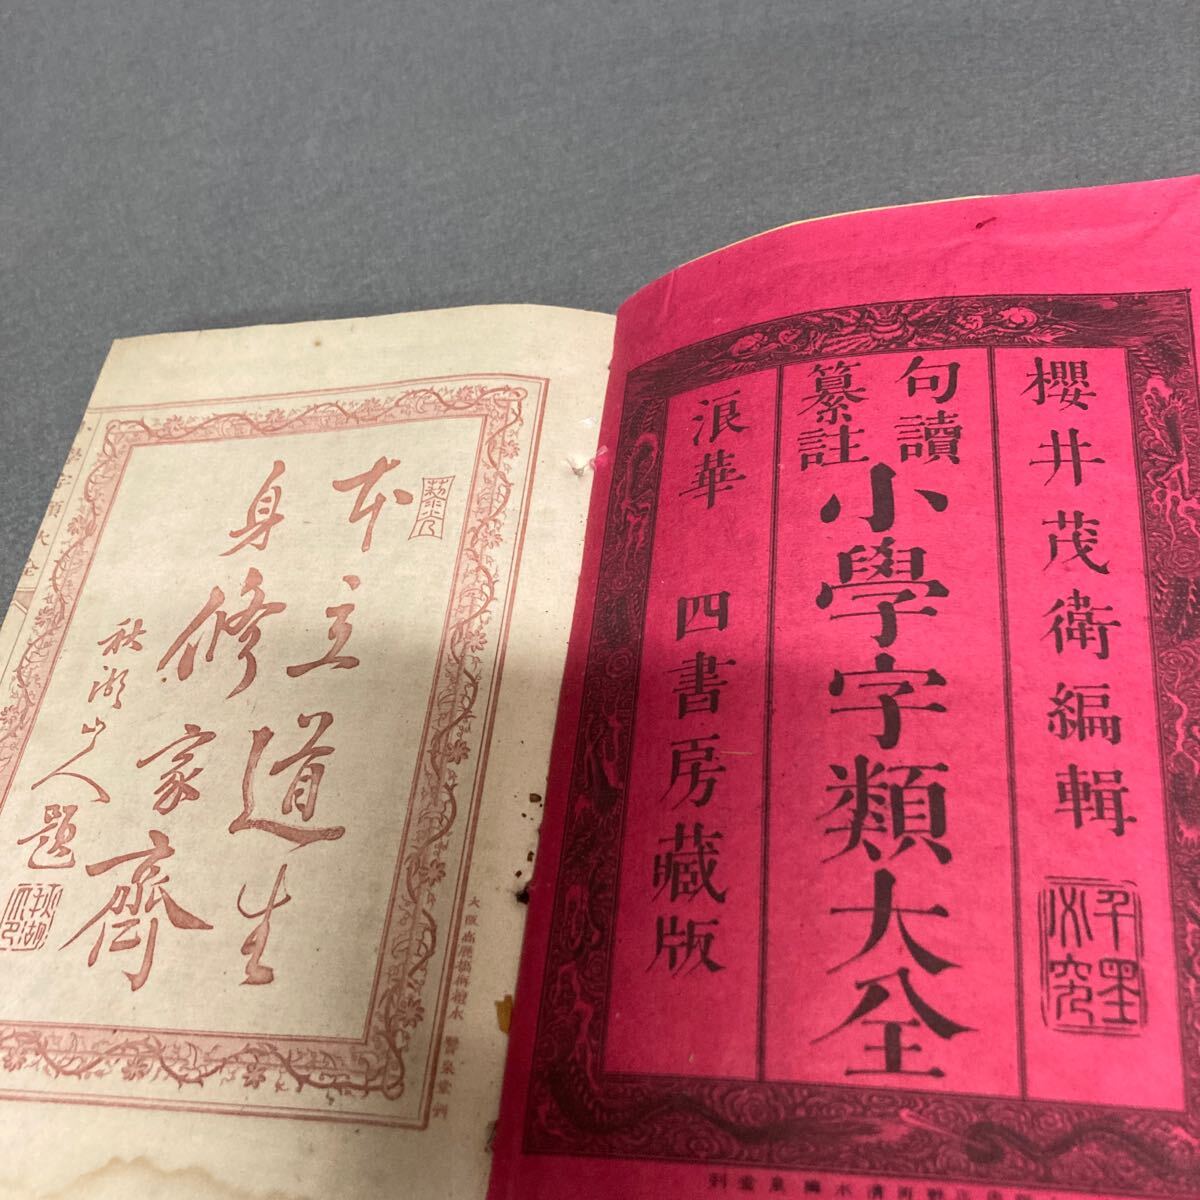 櫻井茂衛編輯
句讀
纂註
小學字類大全
浪華 四書房藏版
本立道生
身修家齊
秋湖山人題